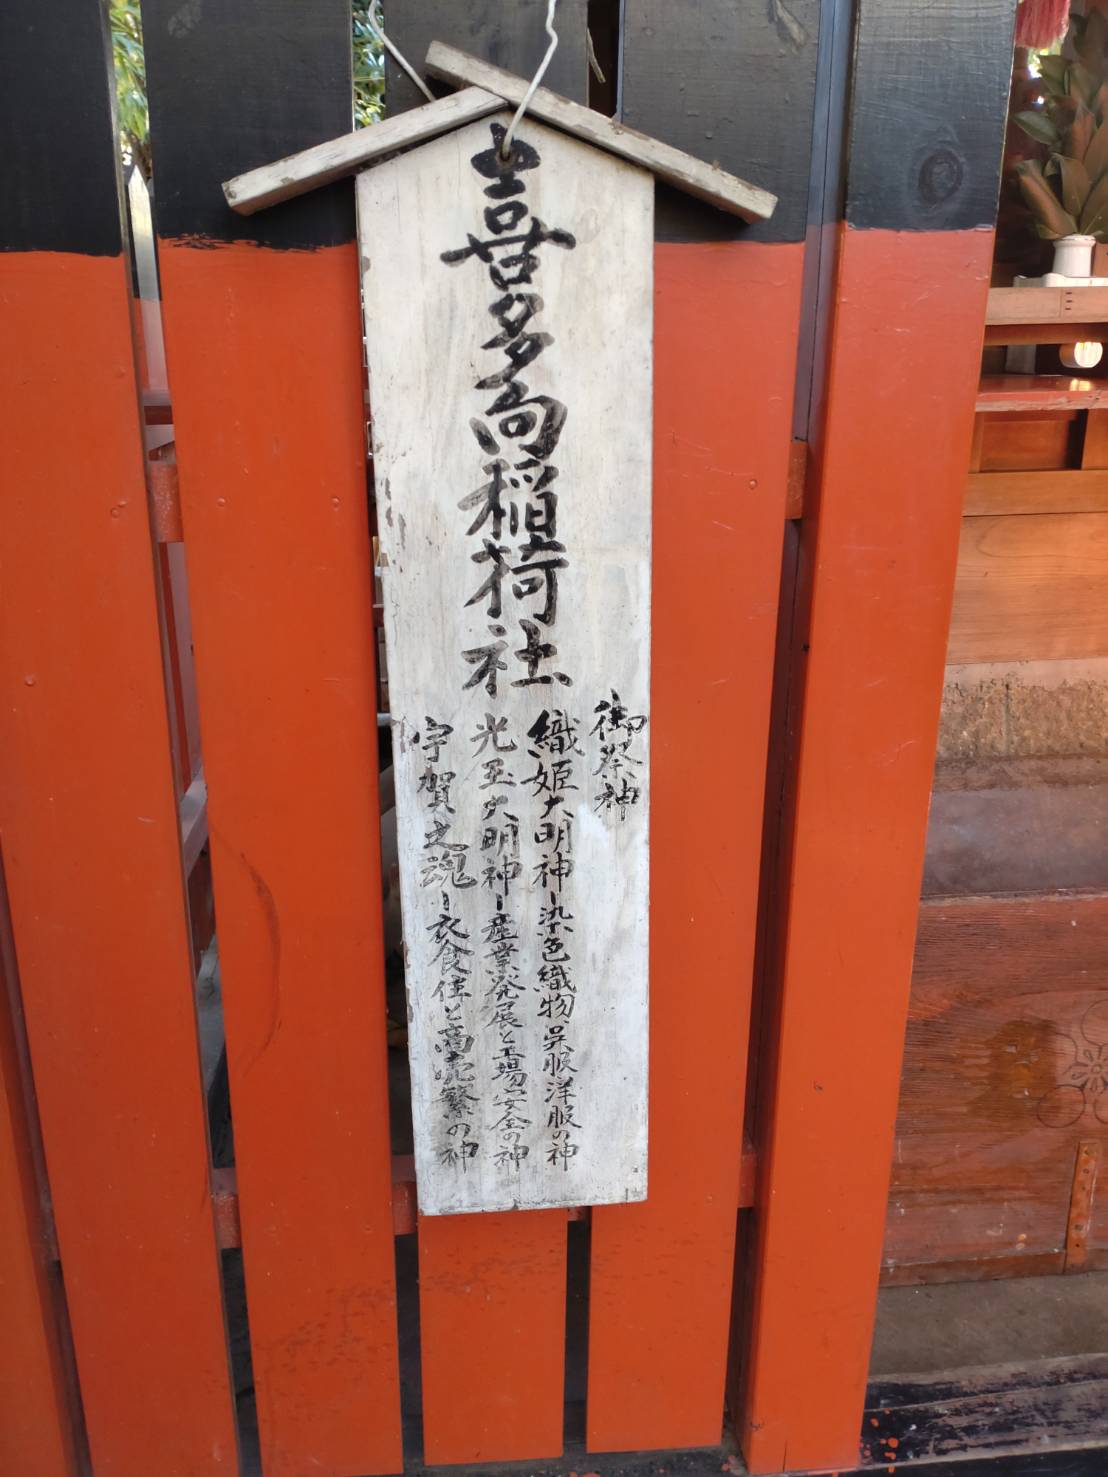 喜多向稲荷社
御祭神
織姫大明神ー染色織物、呉服洋服の神
光玉大明神ー産業発展と工場安全の神
宇賀之魂ー衣食住と商売繁の神